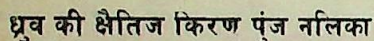 ध्रुव की क्षैतिज किरण पुंज नलिका